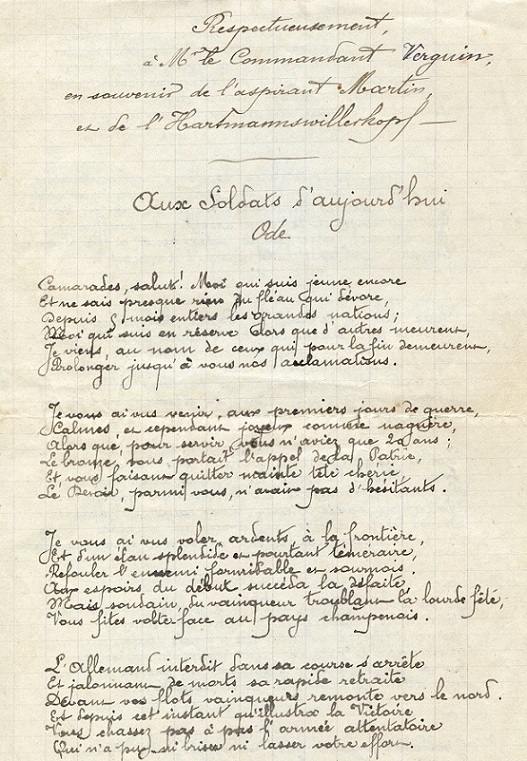 Respectueusement,
à Mr le Commandant Verguin,
en souvenir de l'aspirant Martin,
et de l'Hartmannswillerkopf —
Aux Soldats d'aujourd'hui
Ode.
Camarades, salut! Moi qui suis jeune encore
Et ne sais presque rien du fléau qui dévore,
Depuis 5 mois entiers les grandes nations;
Moi qui suis en réserve alors que d'autres meurent,
Je viens, au nom de ceux qui pour la fin demeurent,
Prolonger jusqu'à vous nos acclamations.
Je vous ai vus venir, aux premiers jours de guerre,
Calmes, et cependant joyeux comme naguère,
Alors que, pour servir, vous n'aviez que 20 ans;
Le bronze vous portait l'appel de la Patrie,
Et vous faisant quitter mainte tête chérie,
Le Devoir, parmi vous, n'avait pas d'hésitants.
Je vous ai vus voler, ardents, à la frontière,
Et d'un élan splendide et pourtant téméraire,
Refouler l'ennemi formidable et sournois.
Aux espoirs du début succéda la défaite,
Mais soudain, du vainqueur troublant la lourde fête,
Vous fîtes volte face au pays champenois.
L'Allemand interdit dans sa course s'arrête
Et jalonnant de morts sa rapide retraite
Devant vos flots vainqueurs remonte vers le nord.
Et depuis cet instant qu'illustra la Victoire
Vous chassez pas à pas l'armée attentatoire
Qui n'a pu ni briser ni lasser votre effort.